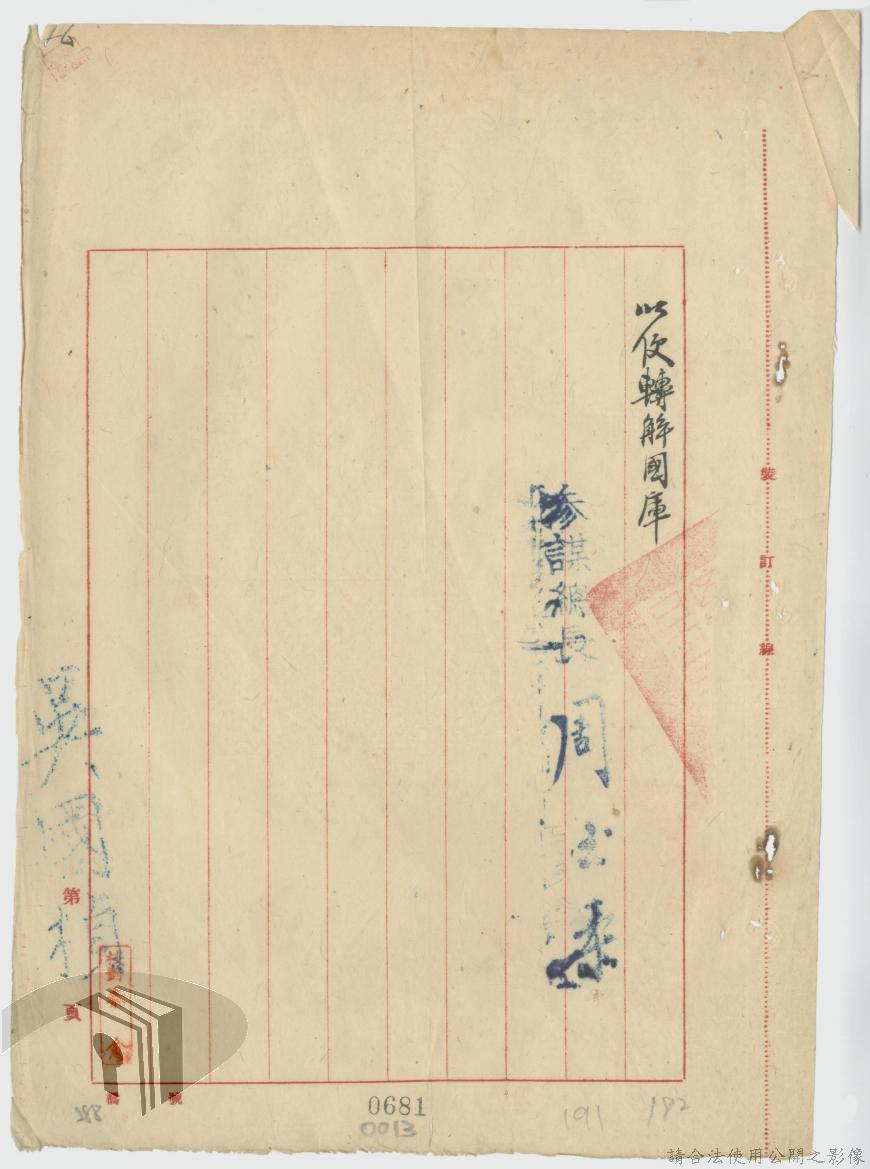 以便轉解國庫
參謀總長 周至柔
吳國楨
裝訂線
第 頁
號
0681
0013
191
192
請合法使用公開之影像